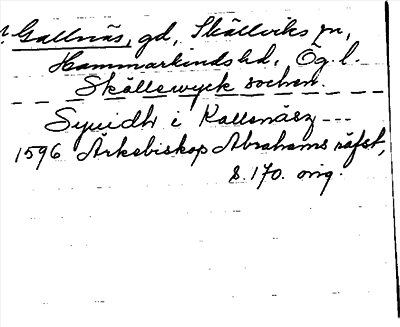 ? Gallnäs, gd, Skällviks sn,
Hammarkinds hd, Ög. l.
Skällewyck sochen.
Syuidh i Kallnäsz ---
1596 Ärkebiskop Abrahams räfst,
s. 170. orig.